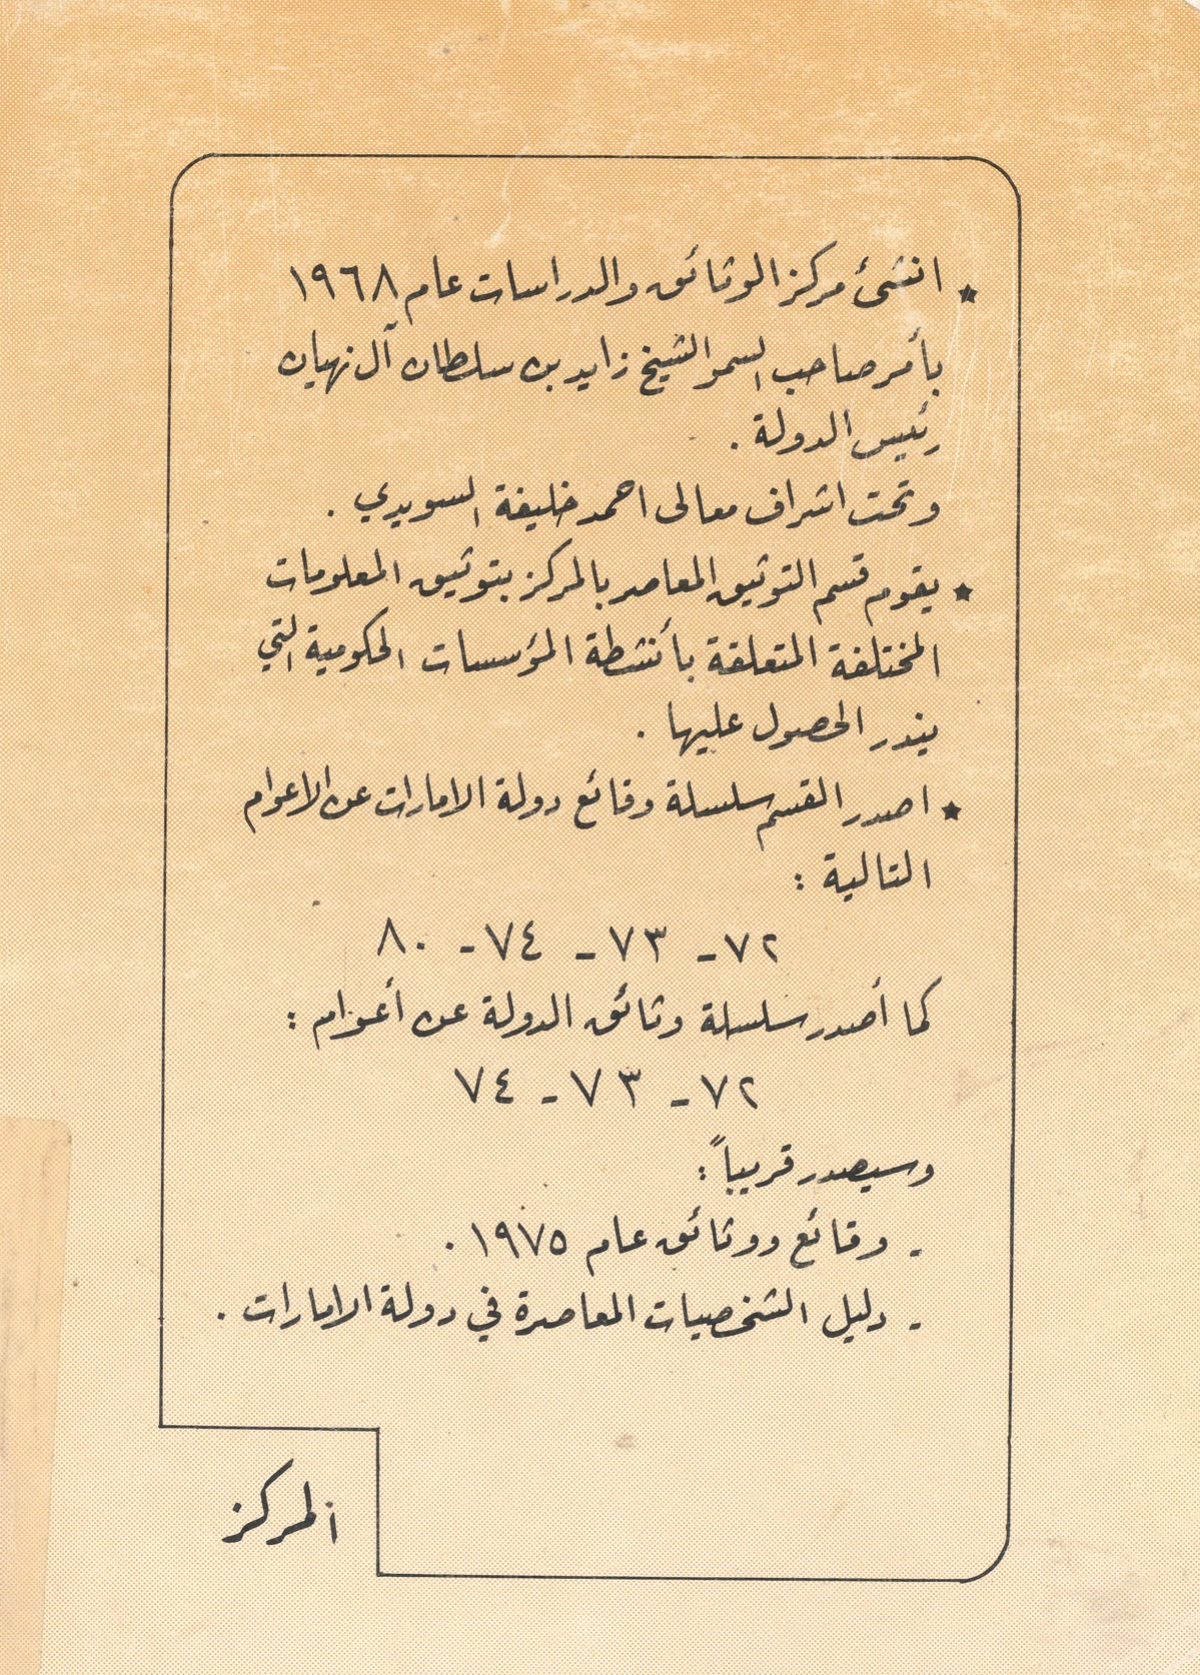 ★ انشئ مركز الوثائق والدراسات عام ١٩٦٨
بأمر صاحب السمو الشيخ زايد بن سلطان آل نهيان
رئيس الدولة .
وتحت اشراف معالى احمد خليفة السويدي .
★ يقوم قسم التوثيق المعاصر بالمركز بتوثيق المعلومات
المختلفة المتعلقة بأنشطة المؤسسات الحكومية التي
يندر الحصول عليها .
★ اصدر القسم سلسلة وقائع دولة الامارات عن الاعوام
التالية :
٧٢ - ٧٣ - ٧٤ - ٨٠
كما أصدر سلسلة وثائق الدولة عن أعوام :
٧٢ - ٧٣ - ٧٤
وسيصدر قريباً :
- وقائع ووثائق عام ١٩٧٥ .
- دليل الشخصيات المعاصرة في دولة الامارات .
المركز